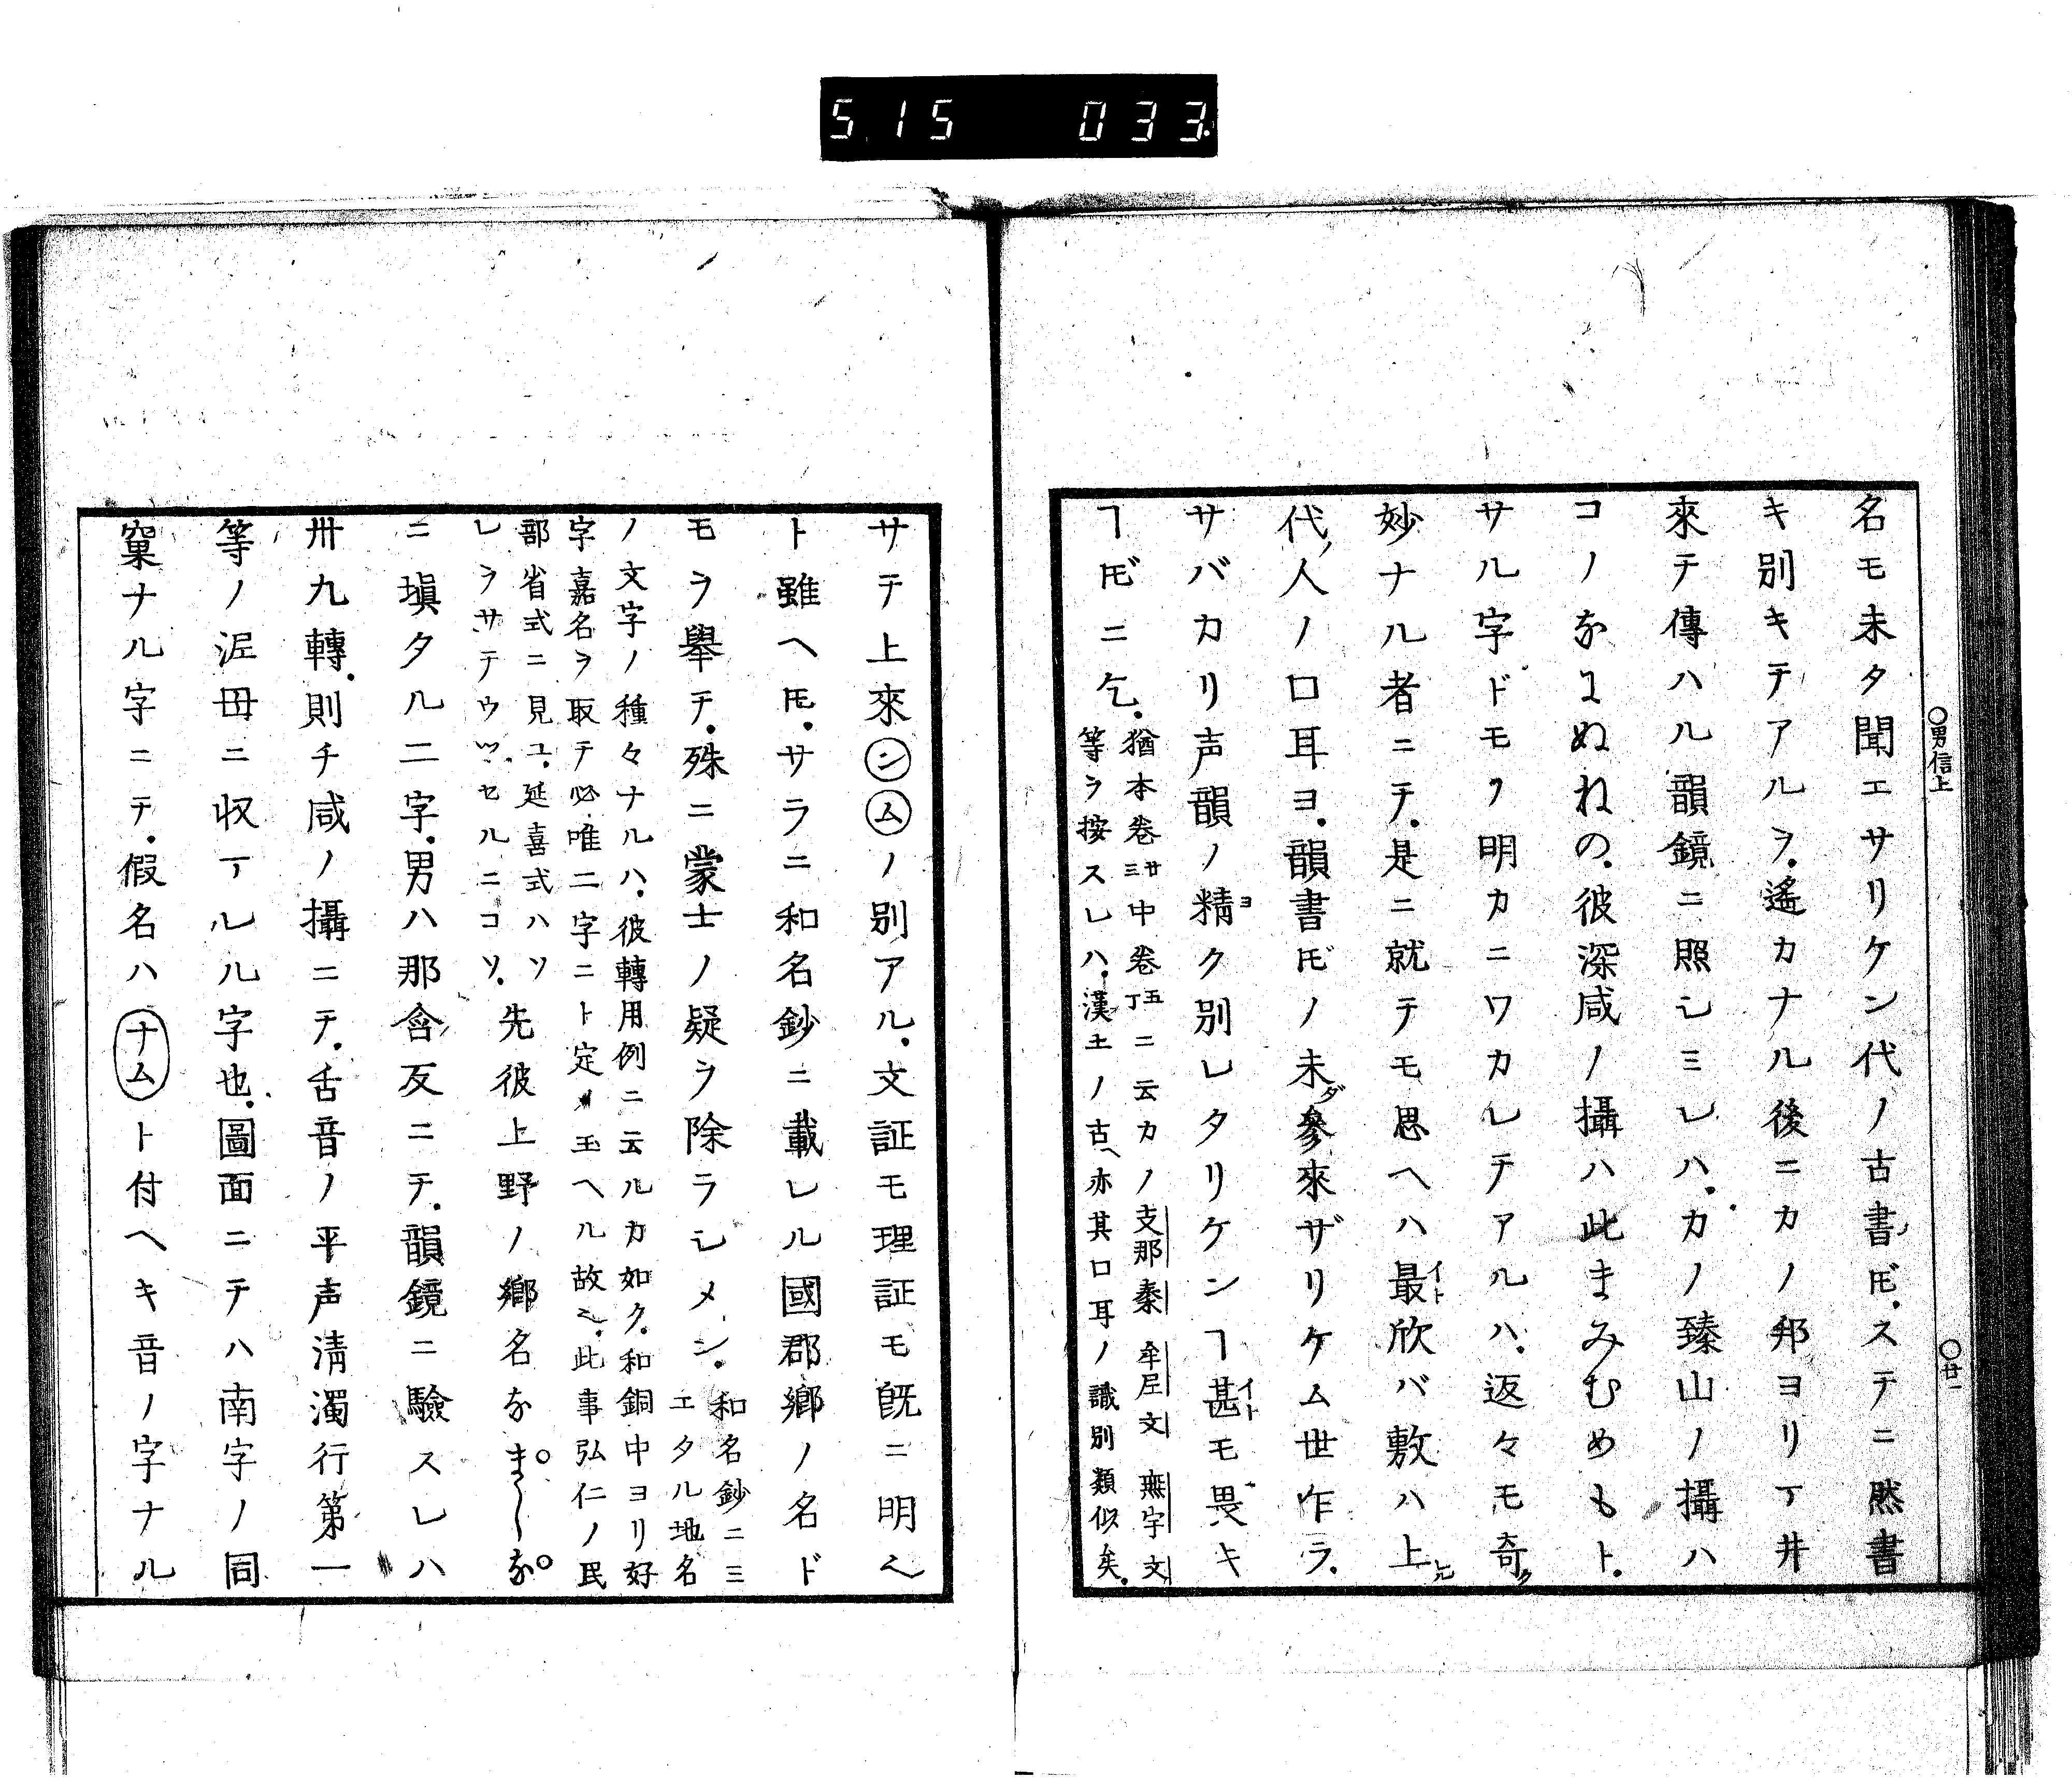 515 033.
○男信上 ○廿一
名モ未タ聞エサリケン代ノ古書𪜈.ステニ然書
キ別キテアルヲ.遙カナル後ニカノ邦ヨリ丆井
來テ傳ハル韻鏡ニ照シミレハ.カノ臻山ノ攝ハ
コノなにぬねの.彼深咸ノ攝ハ此まみむめもト.
サル字ドモヲ明カニワカレテアルハ.返々モ奇ク
妙ナル者ニテ.是ニ就テモ思ヘハ最イト欣バ敷ハ上ツ
代ノ人ノ口耳ヨ.韻書𪜈ノ未ダ參來ザリケム世乍ラ.
サバカリ声韻ノ精ヨク別レタリケンヿ甚イトモ畏キ
ヿ𪜈ニ乞.
猶本卷廿三中卷五丁ニ云カノ支那秦 牟𡰱文 無字文
等ヲ按スレハ.漢土ノ古ヘ亦其口耳ノ識別類似矣.
サテ上來ンムノ別アル.文証モ理証モ旣ニ明ヘ
ト雖ヘ𪜈.サラニ和名鈔ニ載レル國郡鄕ノ名ド
モヲ舉テ.殊ニ蒙士ノ疑ヲ除ラシメン.
和名鈔ニ三
エタル地名
ノ文字ノ種々ナルハ.彼轉用例ニ云ルカ如ク.和銅中ヨリ好
字嘉名ヲ取テ必唯二字ニト定メ玉ヘル故ニ.此事弘仁ノ民
部省式ニ見ユ.延喜式ハソ
レヲサテウツセルニコソ.
先彼上野ノ鄕名なましな
ニ塡タル二字.男ハ那含反ニテ.韻鏡ニ驗スレハ
卅九轉.則チ咸ノ攝ニテ.舌音ノ平声淸濁行第一
等ノ泥母ニ収丆レル字也.圖面ニテハ南字ノ同
窠ナル字ニテ.假名ハナムト付ヘキ音ノ字ナル